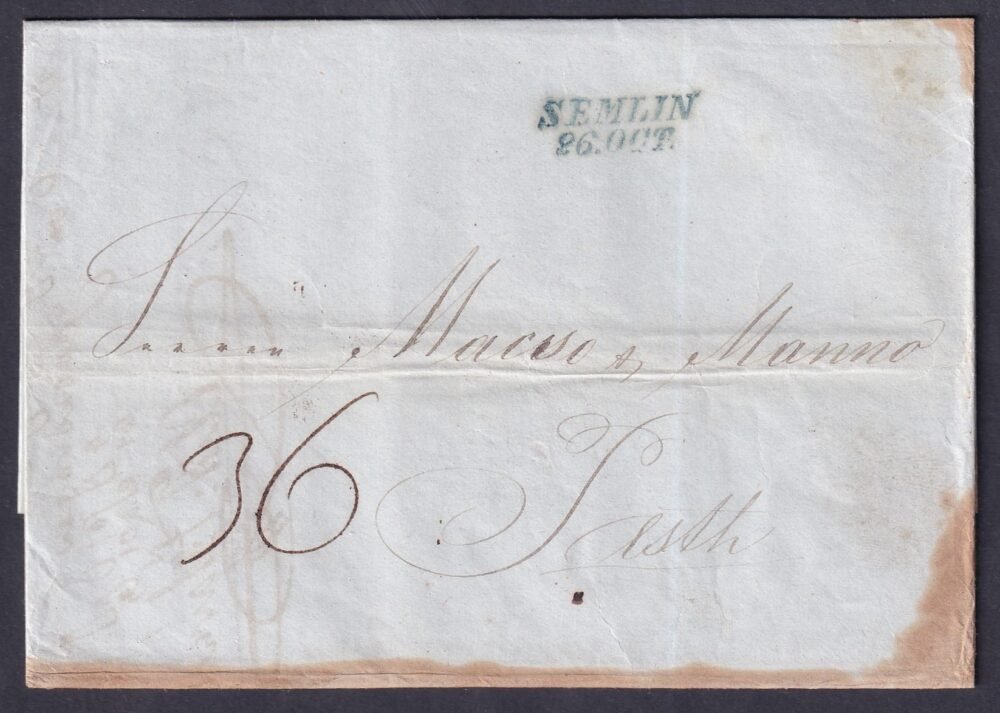 SEMLIN
26.OCT.
Herren Macso & Manno
36
Pesth